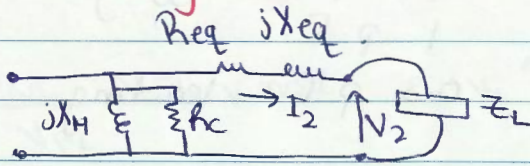 Req jXeq
jXM Rc I2 V2 ZL